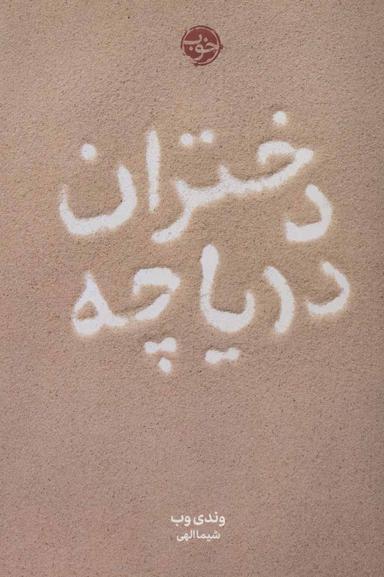 خوب
دختران
دریاچه
وندی وب
شیما الهی